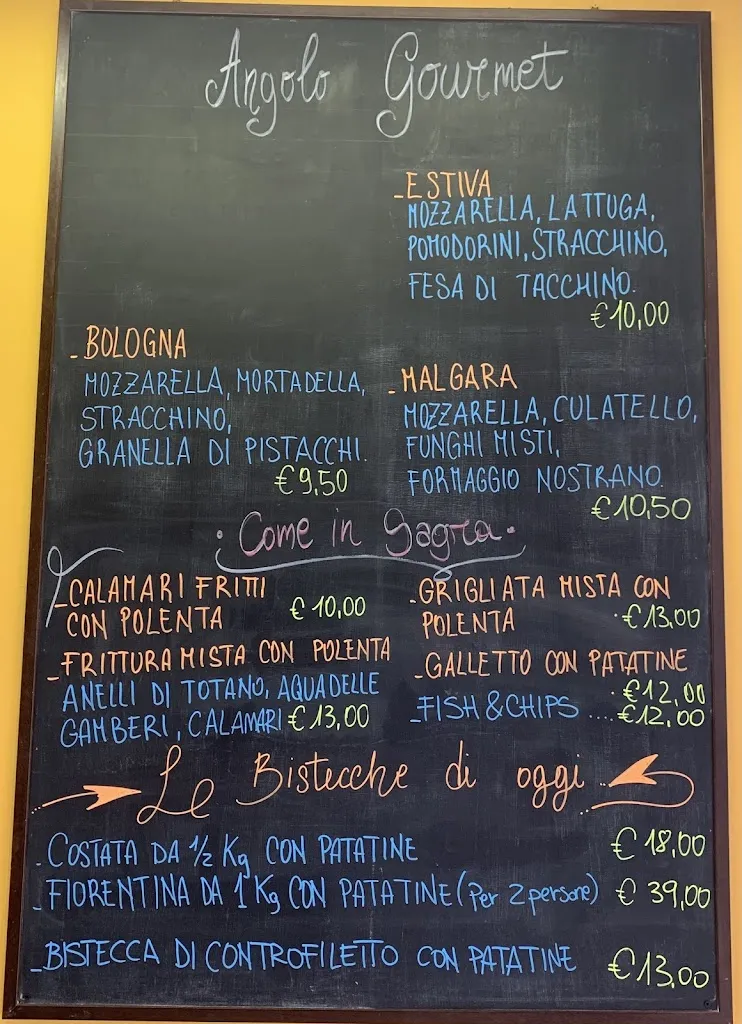 Angolo Gourmet
- ESTIVA
MOZZARELLA, LATTUGA,
POMODORINI, STRACCHINO,
FESA DI TACCHINO.
€10,00
- BOLOGNA
MOZZARELLA, MORTADELLA,
STRACCHINO,
GRANELLA DI PISTACCHI.
€9,50
- MALGARA
MOZZARELLA, CULATELLO,
FUNGHI MISTI,
FORMAGGIO NOSTRANO.
€10,50
· Come in Sagra ·
- CALAMARI FRITTI
CON POLENTA € 10,00
- FRITTURA MISTA CON POLENTA
ANELLI DI TOTANO, AQUADELLE
GAMBERI, CALAMARI € 13,00
- GRIGLIATA MISTA CON
POLENTA · €13,00
- GALLETTO CON PATATINE
· €12,00
- FISH & CHIPS .... €12,00
Le Bistecche di oggi
- COSTATA DA 1/2 Kg CON PATATINE € 18,00
- FIORENTINA DA 1 Kg CON PATATINE (Per 2 persone) € 39,00
- BISTECCA DI CONTROFILETTO CON PATATINE €13,00